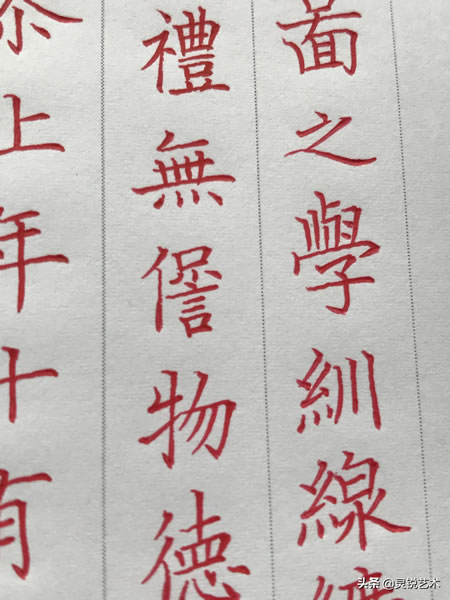 之學紃線
禮無物德
上年十有
頭条 @灵锐艺术